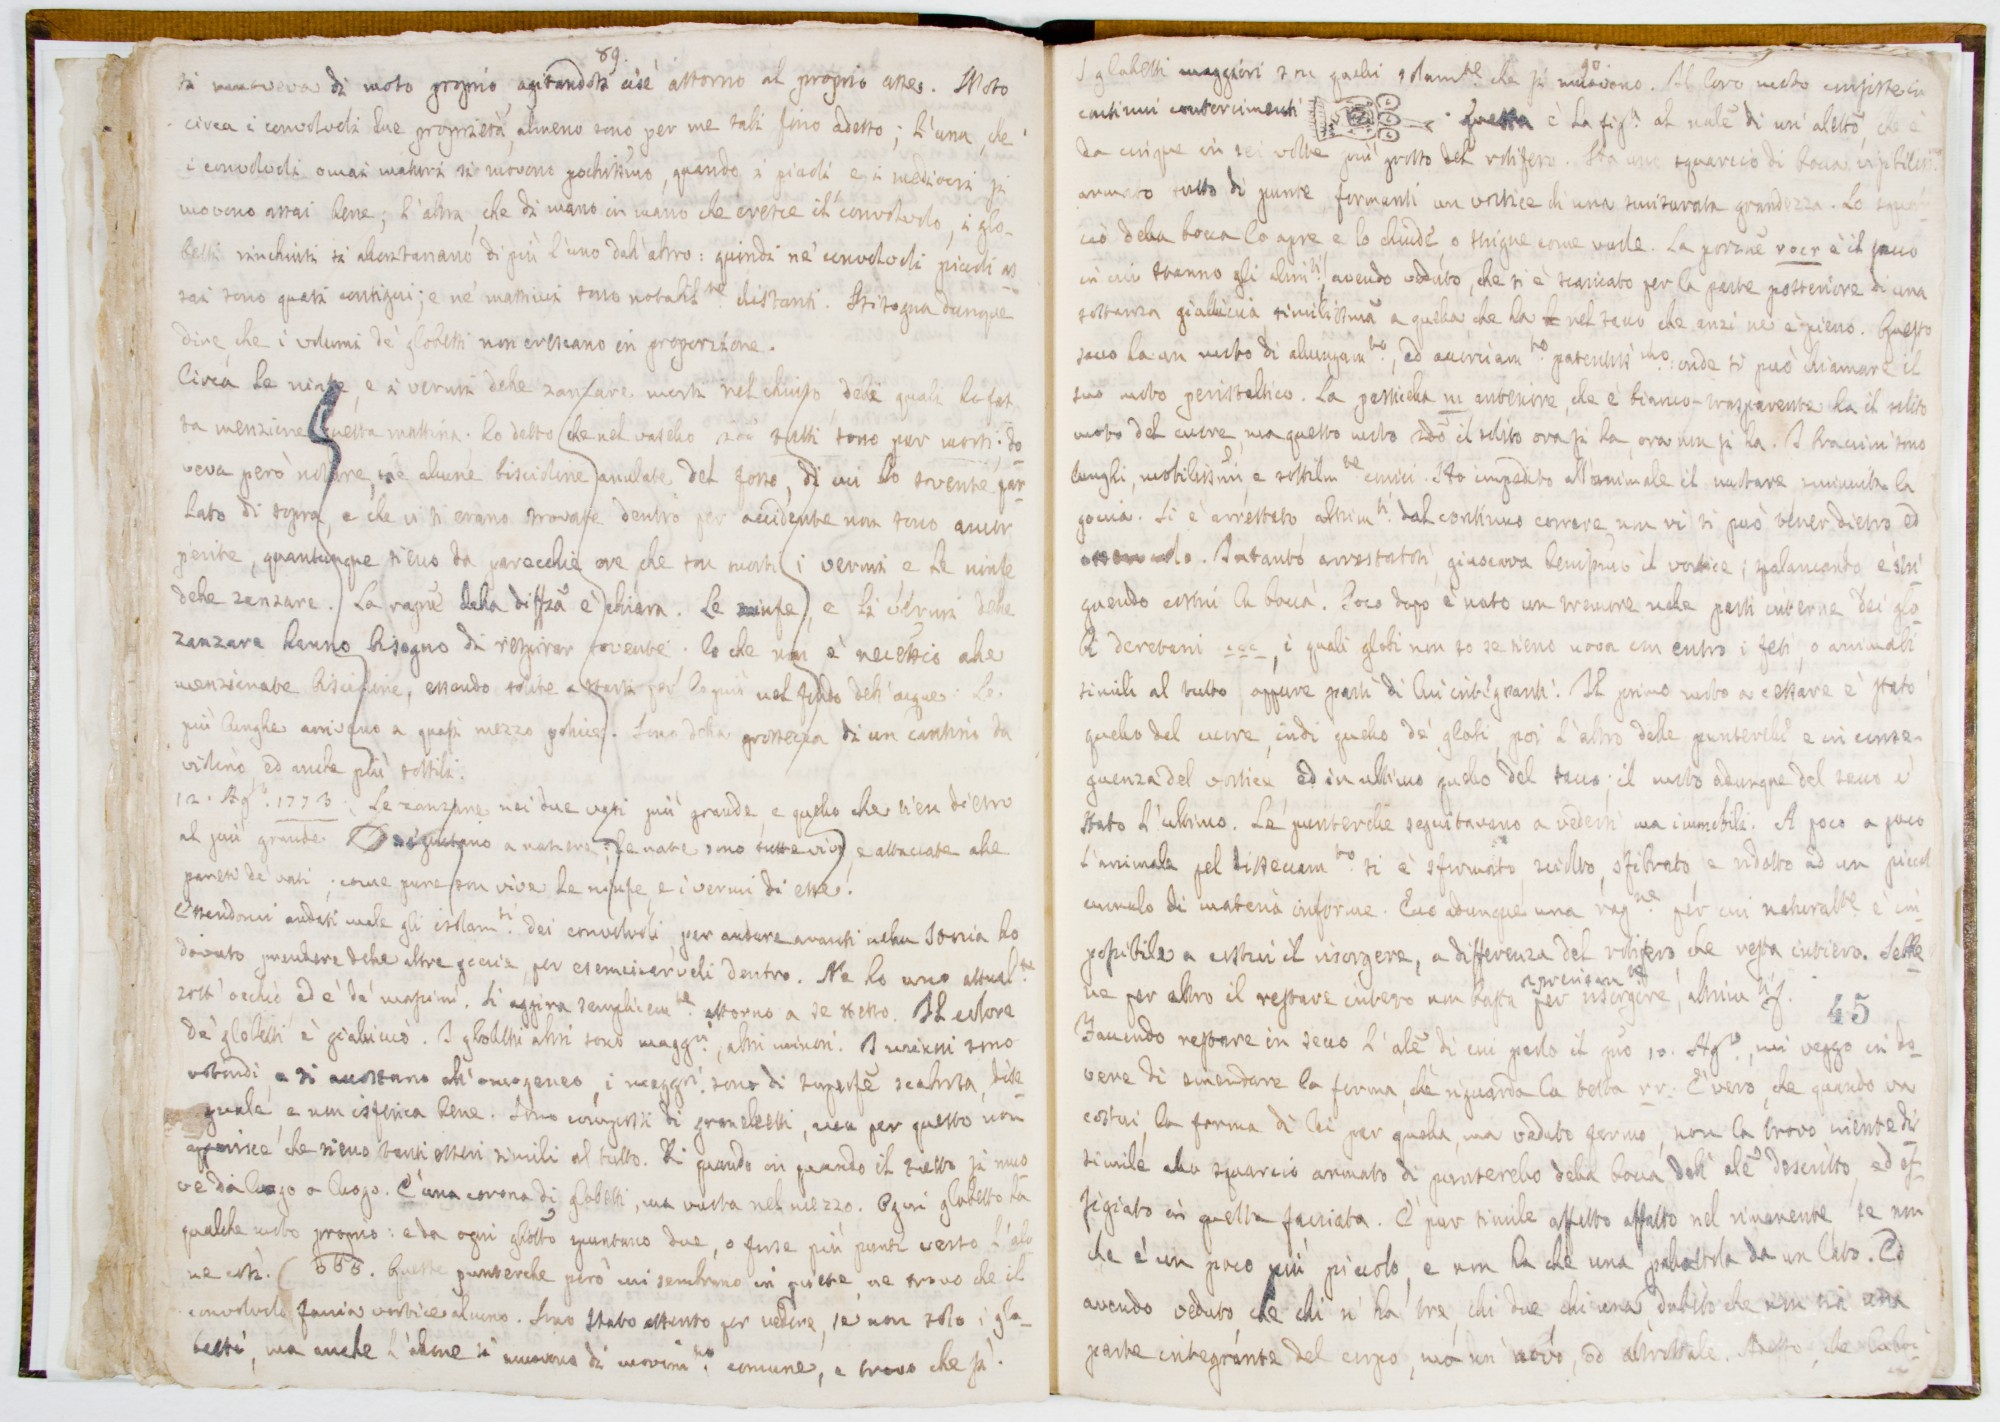 89.
si moveva di moto proprio, agitandosi cioè attorno al proprio asse.
circa i convolvoli due proprietà, almeno sono per me tali sino adesso; l'una, che
i convolvoli omai maturi si movono pochissimo, quando i picoli e i mediocri si
movono assai bene; l'altra, che di mano in mano che cresce il convolvolo, i glo-
betti rinchiusi si alontanano di più l'uno dall'altro: quindi ne' convolvoli picoli as-
sai sono quasi contigui; e ne' massimi sono notabilte distanti. Bisogna dunque
dire, che i volumi de' globetti non crescano in proporzione.
Circa le ninfe, e i vermi delle zanzare morti nel chiuso, delli quali ho fat
ta menzione questa mattina. Ho detto che nel vasello tutti sono per morti; do
veva però notare, che alcune biscioline anulate del fosso, di cui ho sovente par
lato di sopra, e che vi si erano trovate dentro per accidente non sono ancor
perite, quantunque sieno da parecchie ore che son morti i vermi, e le ninfe
delle zanzare. La ragne della diffza è chiara. Le ninfe, e li vermi delle
zanzare hanno bisogno di respirar sovente; lo che non è necessio alle
menzionate bisciuline, essendo solite a starsi per lo più nel fondo dell'acque. Le
più lunghe arrivano a quasi mezzo police. Sono della grossezza di un cantino da
violino, ed anche più sottili.
12. Agto. 1773. Le zanzare nei due vasi più grande, e quello che vien dietro
al più grande seguitano a nascere; le nate sono tutte vive, e attaccate alle
pareti de' vasi; come pure son vive le ninfe, e i vermi di esse.
Essendomi andati male gli isolamti. dei convolvoli, per andare avanti nella Storia ho
dovuto prendere delle altre goccie, per eseminarveli dentro. Ne ho uno attualte
sott'occhio ed è de' massimi. Si aggira semplicemte attorno a se stesso. Il colore
de' globetti è gialiccio. I globetti altri sono maggri, altri minori. I minimi sono
rotondi, e si accostano all'omogeneo, i maggri. sono di superfie scabrosa, dise
guale, e non isferica bene. Sono composti di granelletti, ma per questo non
apparisce che sieno tanti esseri simili al tutto. Di quando in quando il tutto si muo
ve da luogo a luogo. C'è una corona di globetti, ma vuota nel mezzo. Ogni globetto ha
qualche moto proprio: e da ogni globtto spuntano due, o forse più punte verso l'alo
ne così. Queste punterelle però mi sembrano in quiete, ne trovo che il
convolvolo faccia vortice alcuno. Sono stato attento per vedere, se non solo i glo-
betti, ma anche l'alone si movono di movimto. comune, e trovo che sì.
90
I globetti maggiori son quelli solamte. che si movono. Il loro moto consiste in
continui contorcimenti. Questa è la figa. al nale di un'aletto, che è
da cinque in sei volte più grosso del rotifero. Ha uno squarcio di bocca
armato tutto di punte, formanti un vortice di una smisurata grandezza. Lo squar
cio della bocca lo apre e lo chiude o strigne come vuole. La porzne rocr è il sacco
in cui stanno gli alimti, avendo veduto, che si è scaricato per la parte posteriore di una
sostanza gialiccia, similissima a quella che ha nel sacco che anzi ne è pieno. Questo
sacco ha un moto di alungamto, ed acorciamto. patentissimo: onde si può chiamare il
suo moto peristaltico. La pessichetta m anteriore, che è bianco-trasparente ha il solito
moto del cuore, ma questo moto il solito ora si ha, ora non si ha. I bracini sono
lunghi, mobilissimi, e sottilmte conici. Ho impedito all'animale il nuotare sminuita la
goccia. Si è arrestato altrimti. dal continuo correre non vi si può tener dietro ed
. Intanto arrestatosi, giuocava benissimo il vortice, spalancando, e stri
gnendo costui la bocca. Poco dopo è nato un tremore nelle parti interne dei glo
bi deretani ccc, i quali globi non so se sieno uova con entro i feti, o animali
simili al tutto, oppure parti di lui integranti. Il primo moto a cessare è stato
quello del cuore, indi quello de' globi, poi l'altro delle punterelle e in conse-
guenza del vortice ed in ultimo quello del sacco; il moto adunque del sacco è
stato l'ultimo. Le punterelle seguitavano a vedersi ma immobili. A poco a poco
l'animale pel disseccamto si è sformato sciolto, sfibrato, e ridotto ad un piccol
cumulo di materia informe. Ecco adunque una ragne per cui naturalte è im
possibile a costui il risorgere, a differenza del rotifero, che resta intiero. Sebbe
ne per altro il restare intero non basta per risorgere, altrimti
45
Facendo restare in secco l'ale di cui parlo il gno 10. Agto., mi veggo in do
vere di emendare la forma, che riguarda la testa rr. È vero, che quando va
costui, la forma di lei par quella, ma veduto fermo, non la trovo niente di
simile allo squarcio armato di punterelle della bocca dell'ale descritto, ed ef-
figiato in questa facciata. È pur simile affatto affatto nel rimanente se non
che è un poco più piccolo, e non ha che una pallottola da un lato. Ed
avendo veduto che chi n'ha tre, chi due, chi una, dubito che non sia una
parte integrante del corpo, ma un'uovo, od altro tale.